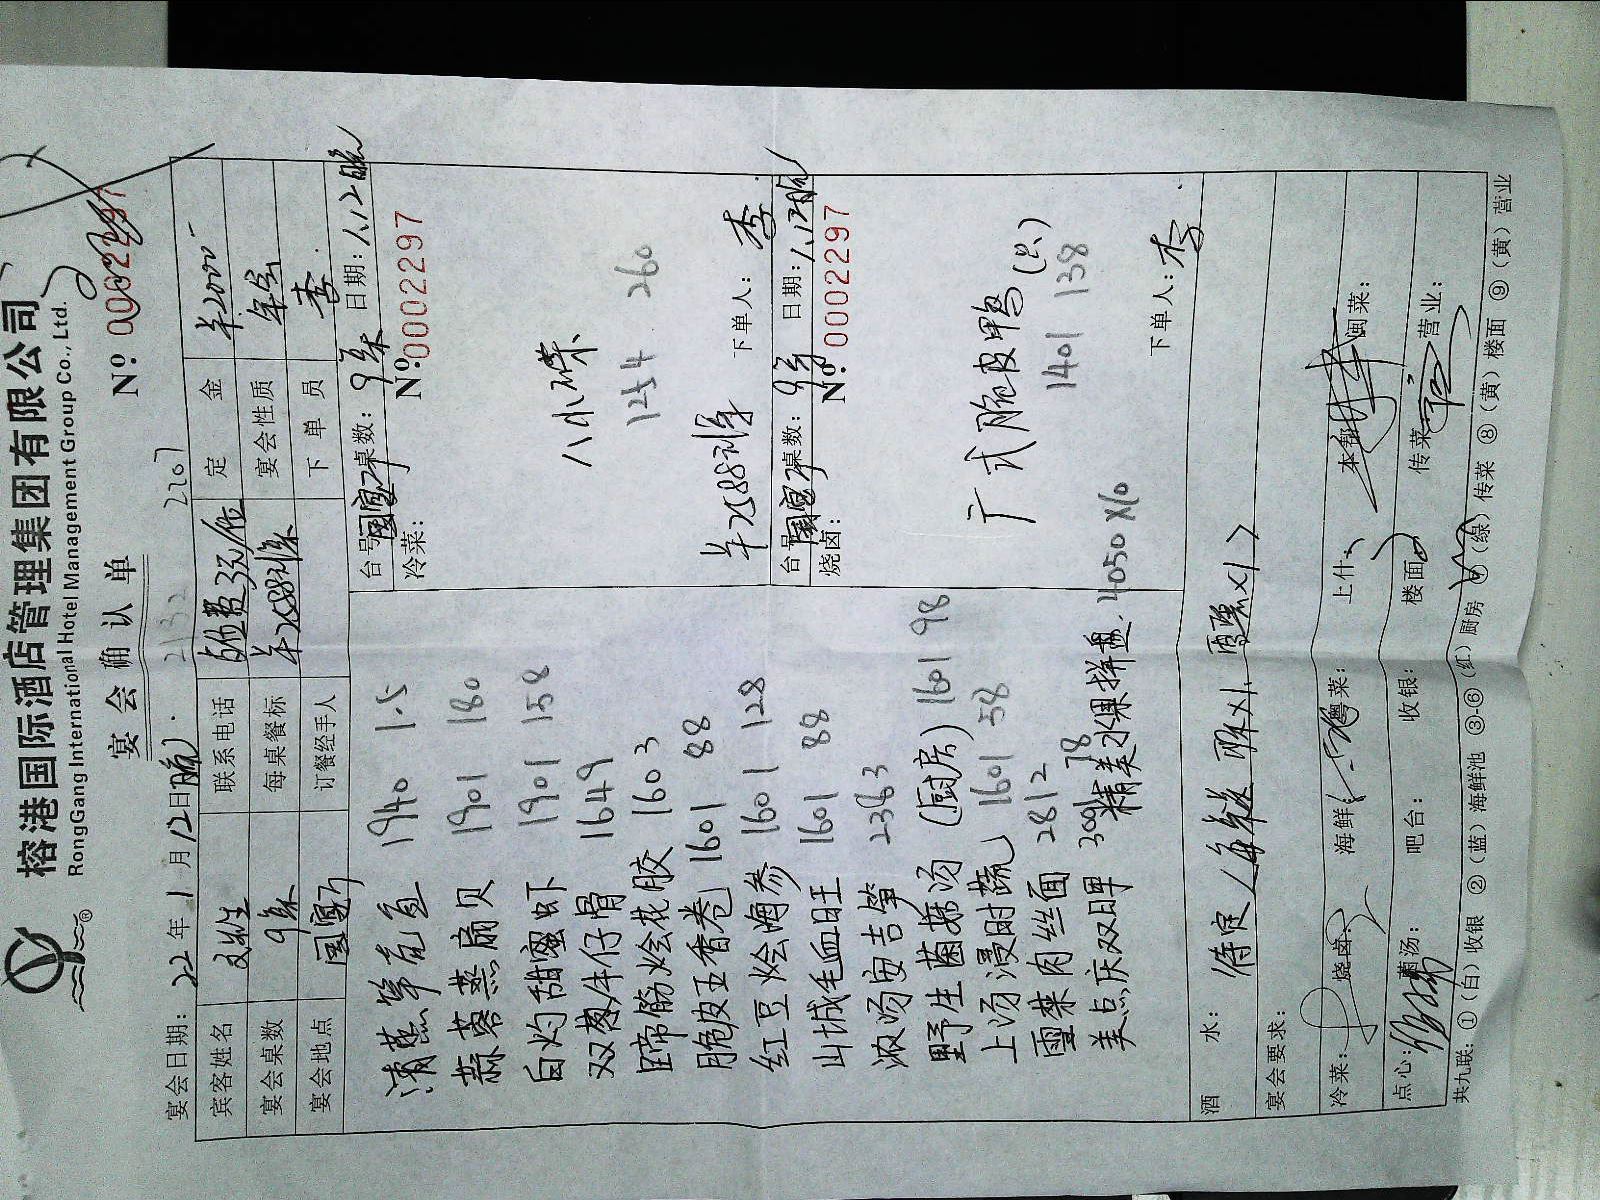 榕港国际酒店管理集团有限公司
RongGang International Hotel Management Group Co., Ltd.
宴会确认单
№ 0002297
宴会日期: 22年1月12日晚 2132 2207
宾客姓名 联系电话 定金 ¥2000-
宴会桌数 9桌 每桌餐标 ¥2588元/桌 宴会性质
宴会地点 国宴厅 订餐经手人 下单员 李
清蒸笋壳鱼 1940 1.5
蒜蓉蒸扇贝 1901 180
白灼甜蜜虾 1901 158
双葱牛仔骨 1649
蹄筋烩花胶 1603
脆皮五香卷 1601 88
红豆烩海参 1601 128
山城毛血旺 1601 88
浓汤安吉笋 2383
野生菌菇汤(厨房) 1601 98
上汤浸时蔬 1601 58
雪菜肉丝面 2812
美点庆双晖 3001 78
精美水果拼盘 4050X10
台号: 国宴厅 桌数: 9桌 日期: 1.12晚
冷菜: №0002297
八小碟
1254 260
下单人: 李
台号: 国宴厅 桌数: 9桌 日期: 1.12晚
烧卤: №0002297
广式脆皮鸭(只)
1401 138
下单人: 李
酒水: 待定
宴会要求:
冷菜: 烧卤: 海鲜: 粤菜: 上什: 本帮: 闽菜:
点心: 蒸汤: 吧台: 收银: 楼面: 传菜: 营业:
共九联: ①(白)收银 ②(蓝)海鲜池 ③-⑥(红)厨房 ⑦(绿)传菜 ⑧(黄)楼面 ⑨(黄)营业